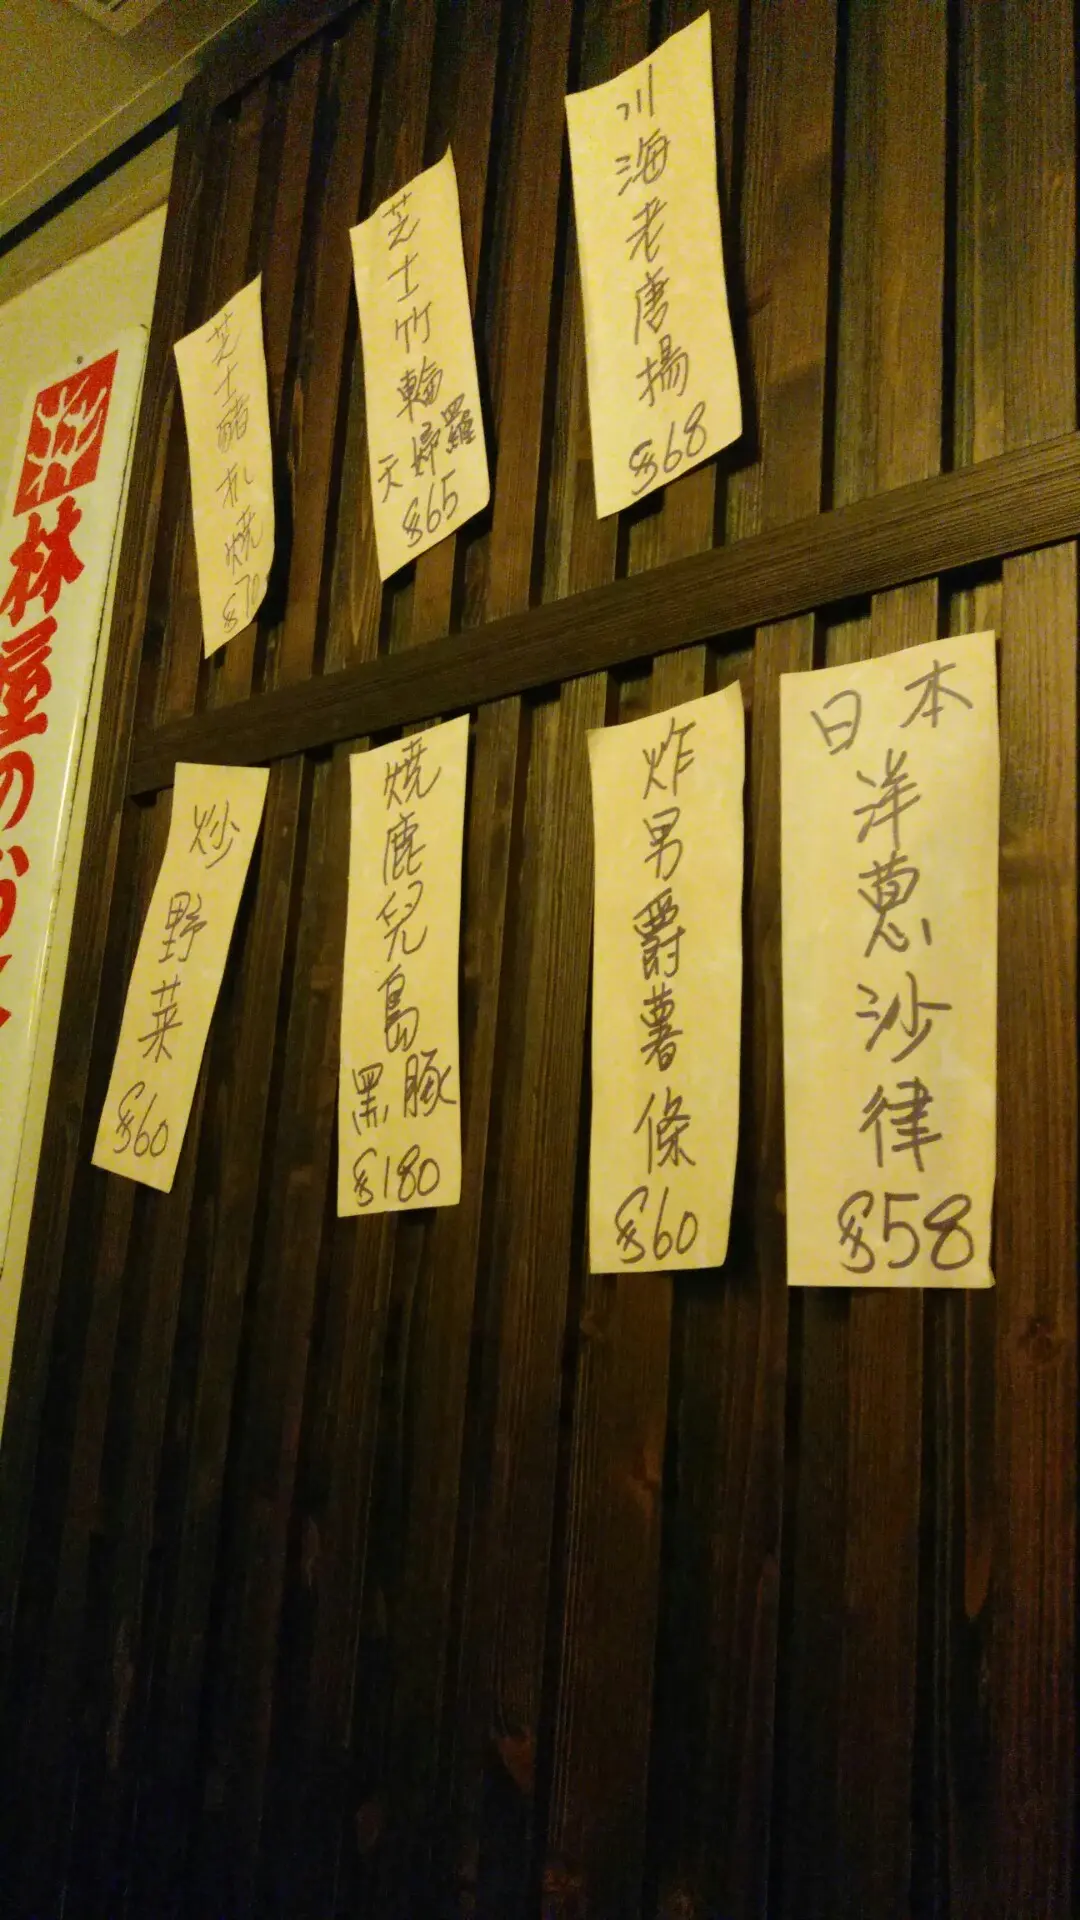 川海老唐揚
$68
芝士竹輪
天婦羅
$65
芝士豬扒燒
$70
日本
洋蔥沙律
$58
炸男爵薯條
$60
燒鹿兒島
黑豚
$180
炒野菜
$60
林屋の